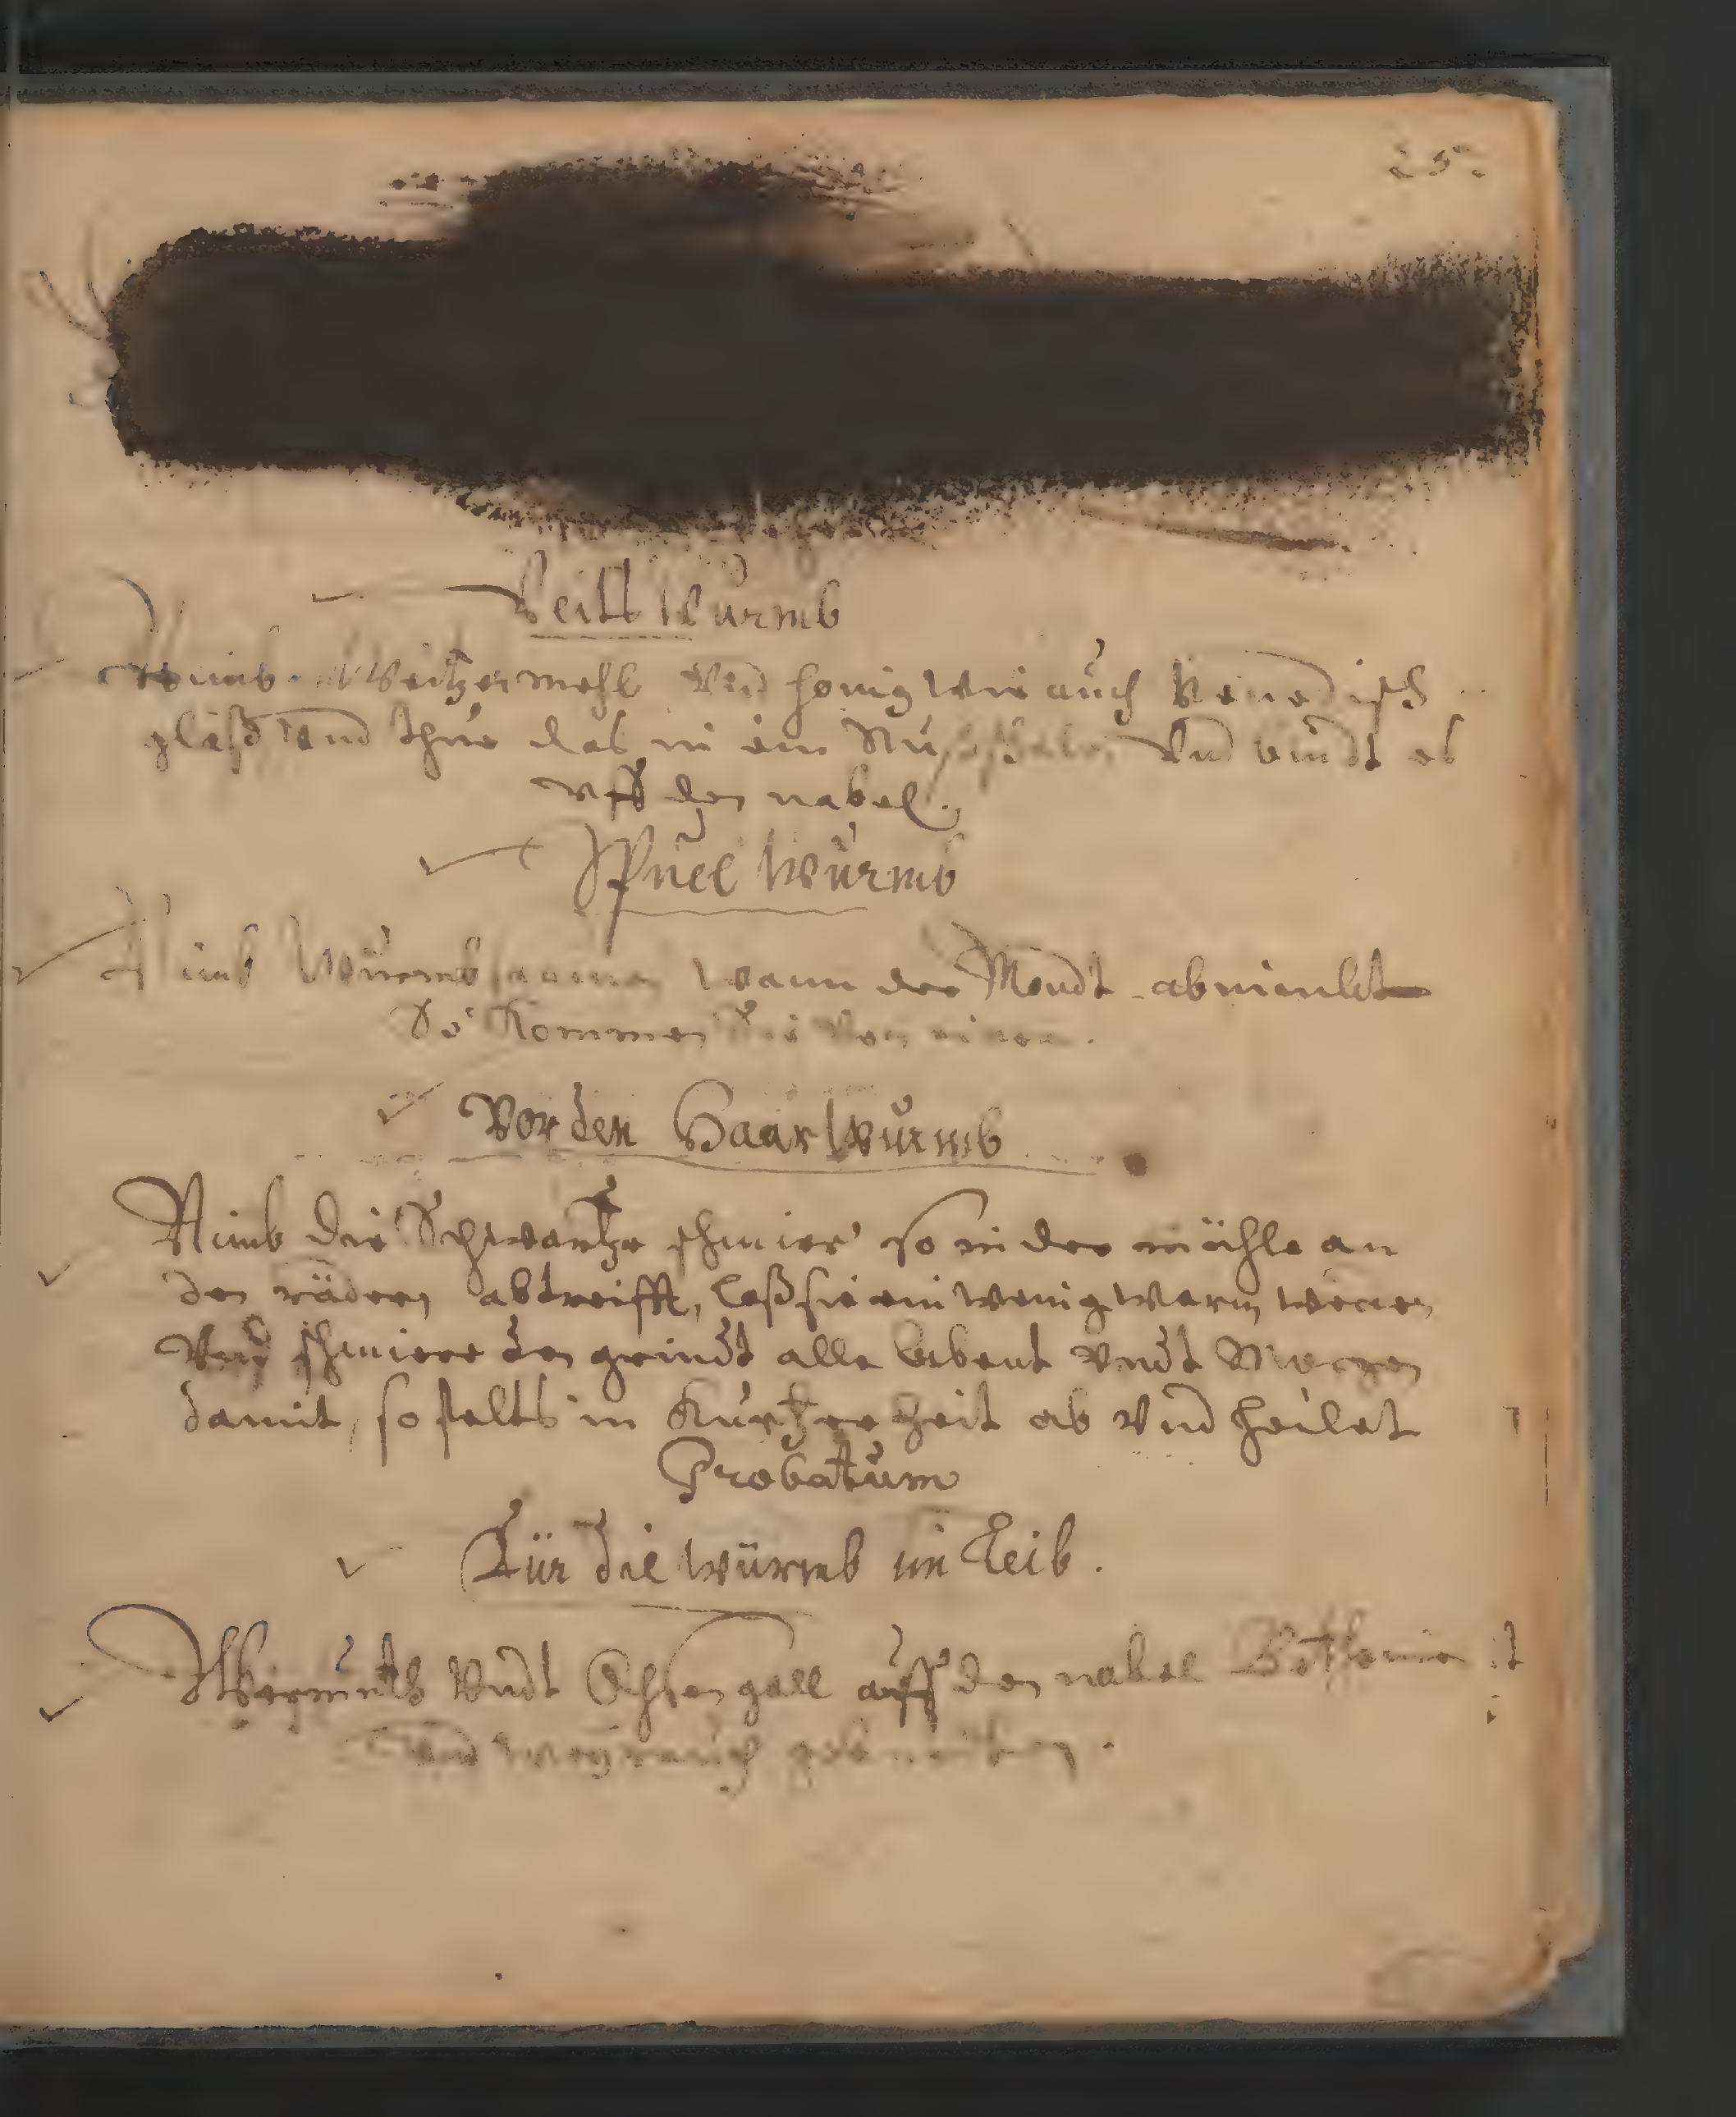 25.
Beitt Würmb
Nimb Weitzenmehl Vnd honig wie auch Venedisch
glaß Vnd thue das in ein Nußschalen Vnd bindt es
vff den nabel.
Spuel Würmb
Nimb Wurmbsaamen wann der Mondt abnimbt
So kommen sie von
Vor den Haar Wurmb
Nimb die Schwartze schmier so in der mühle an
den rädern abtreifft, laß sie ein wenig warm werden
Vnd schmiere den grindt alle Abent vndt Morgen
damit, so falts in kurtzer zeit ab Vnd heilet
Probatum
Für die würmb im Leib.
Wermuth Vndt Ochsengall auff den nabel
Vnd weyrauch